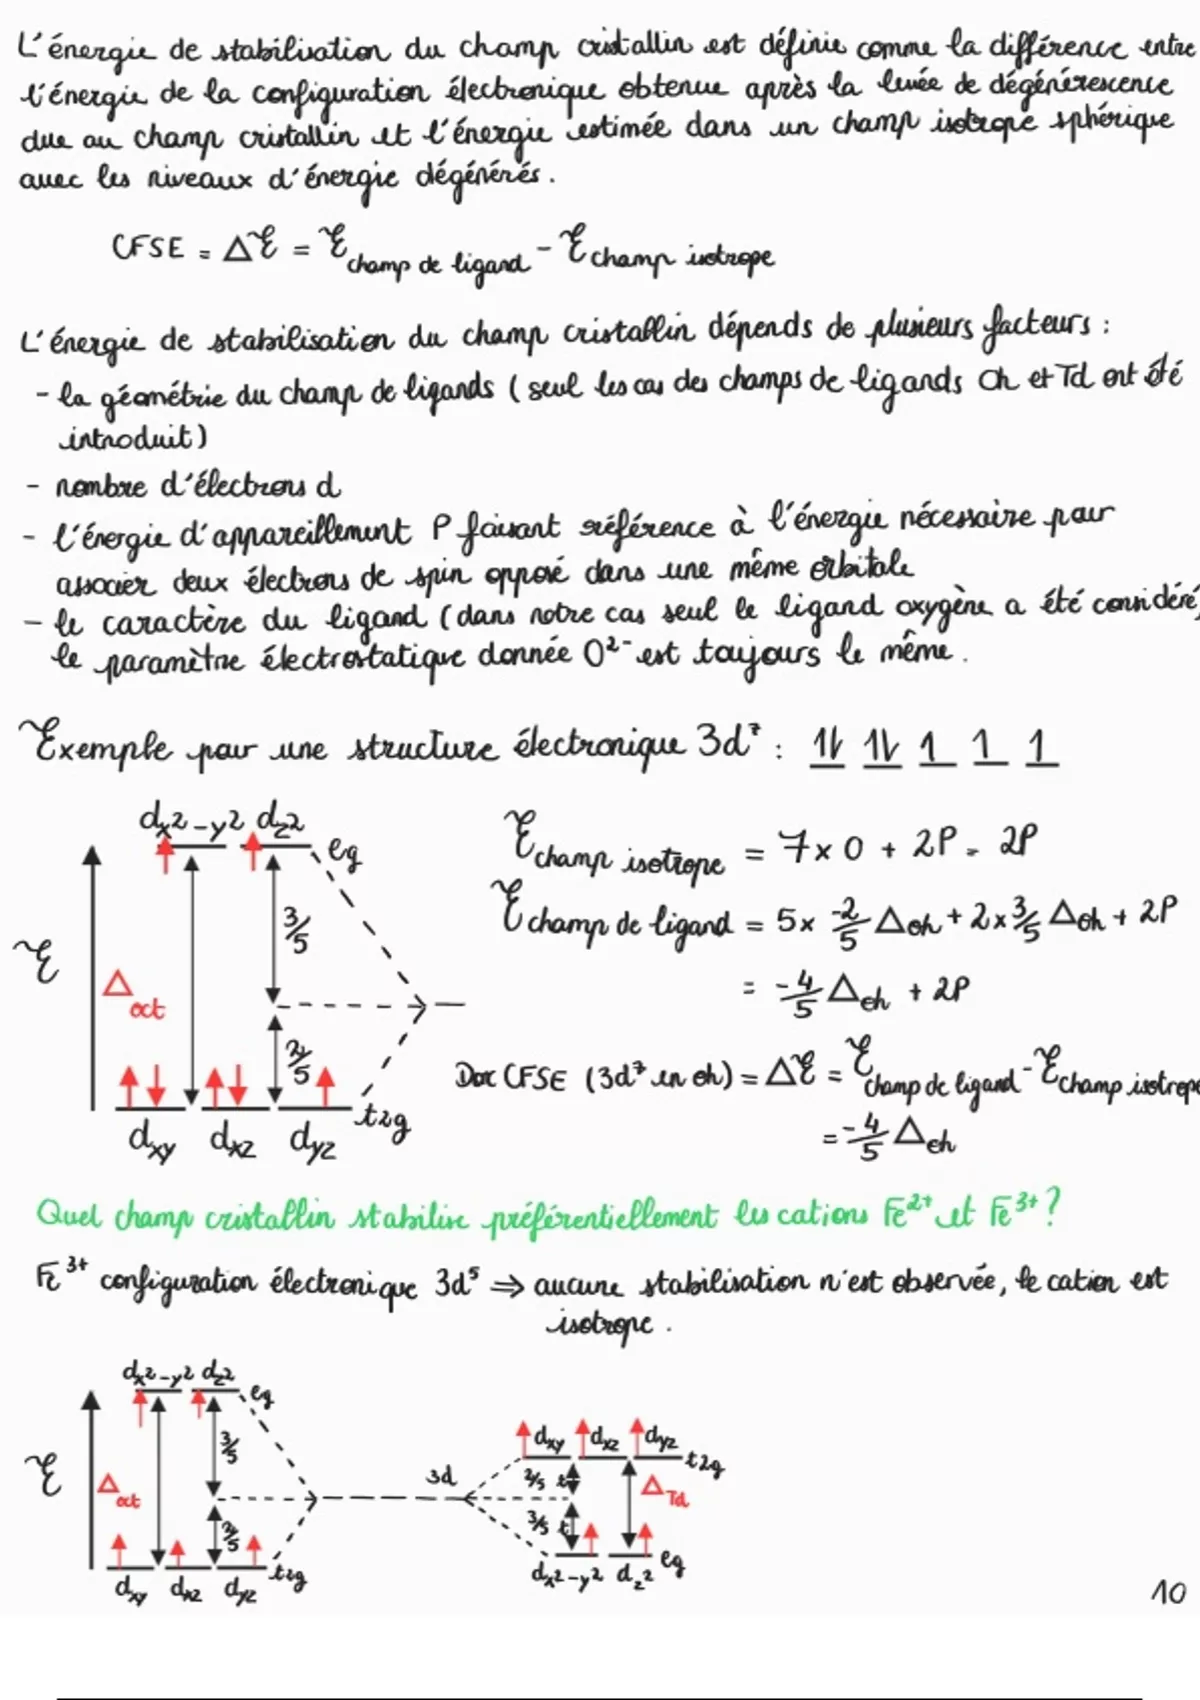 L'énergie de stabilisation du champ cristallin est définie comme la différence entre
l'énergie de la configuration électronique obtenue après la levée de dégénérescence
due au champ cristallin et l'énergie estimée dans un champ isotrope sphérique
avec les niveaux d'énergie dégénérés.
CFSE = ΔE = E champ de ligand - E champ isotrope
L'énergie de stabilisation du champ cristallin dépends de plusieurs facteurs :
- la géométrie du champ de ligands (seul les cas des champs de ligands Oh et Td ont été
introduit)
- nombre d'électrons d
- l'énergie d'appareillement P faisant référence à l'énergie nécessaire pour
associer deux électrons de spin opposé dans une même orbitale
- le caractère du ligand (dans notre cas seul le ligand oxygène a été considéré,
le paramètre électrostatique donnée O²⁻ est toujours le même.
Exemple pour une structure électronique 3d⁷ : 1l 1l 1 1 1
dx²-y² dz²
eg
3/5
E
Δoct
2/5
t2g
dxy dxz dyz
E champ isotrope = 7x0 + 2P = 2P
E champ de ligand = 5x -2/5 Δoh + 2x 3/5 Δoh + 2P
= -4/5 Δoh + 2P
Donc CFSE (3d⁷ en oh) = ΔE = E champ de ligand - E champ isotrope
= -4/5 Δoh
Quel champ cristallin stabilise préférentiellement les cations Fe²⁺ et Fe³⁺ ?
Fe³⁺ configuration électronique 3d⁵ ⇒ aucune stabilisation n'est observée, le cation est
isotrope.
dx²-y² dz²
eg
3/5
E
Δoct
2/5
t2g
dxy dxz dyz
3d
dxy dxz dyz
t2g
2/5 t
ΔTd
3/5 t
eg
dx²-y² dz²
10